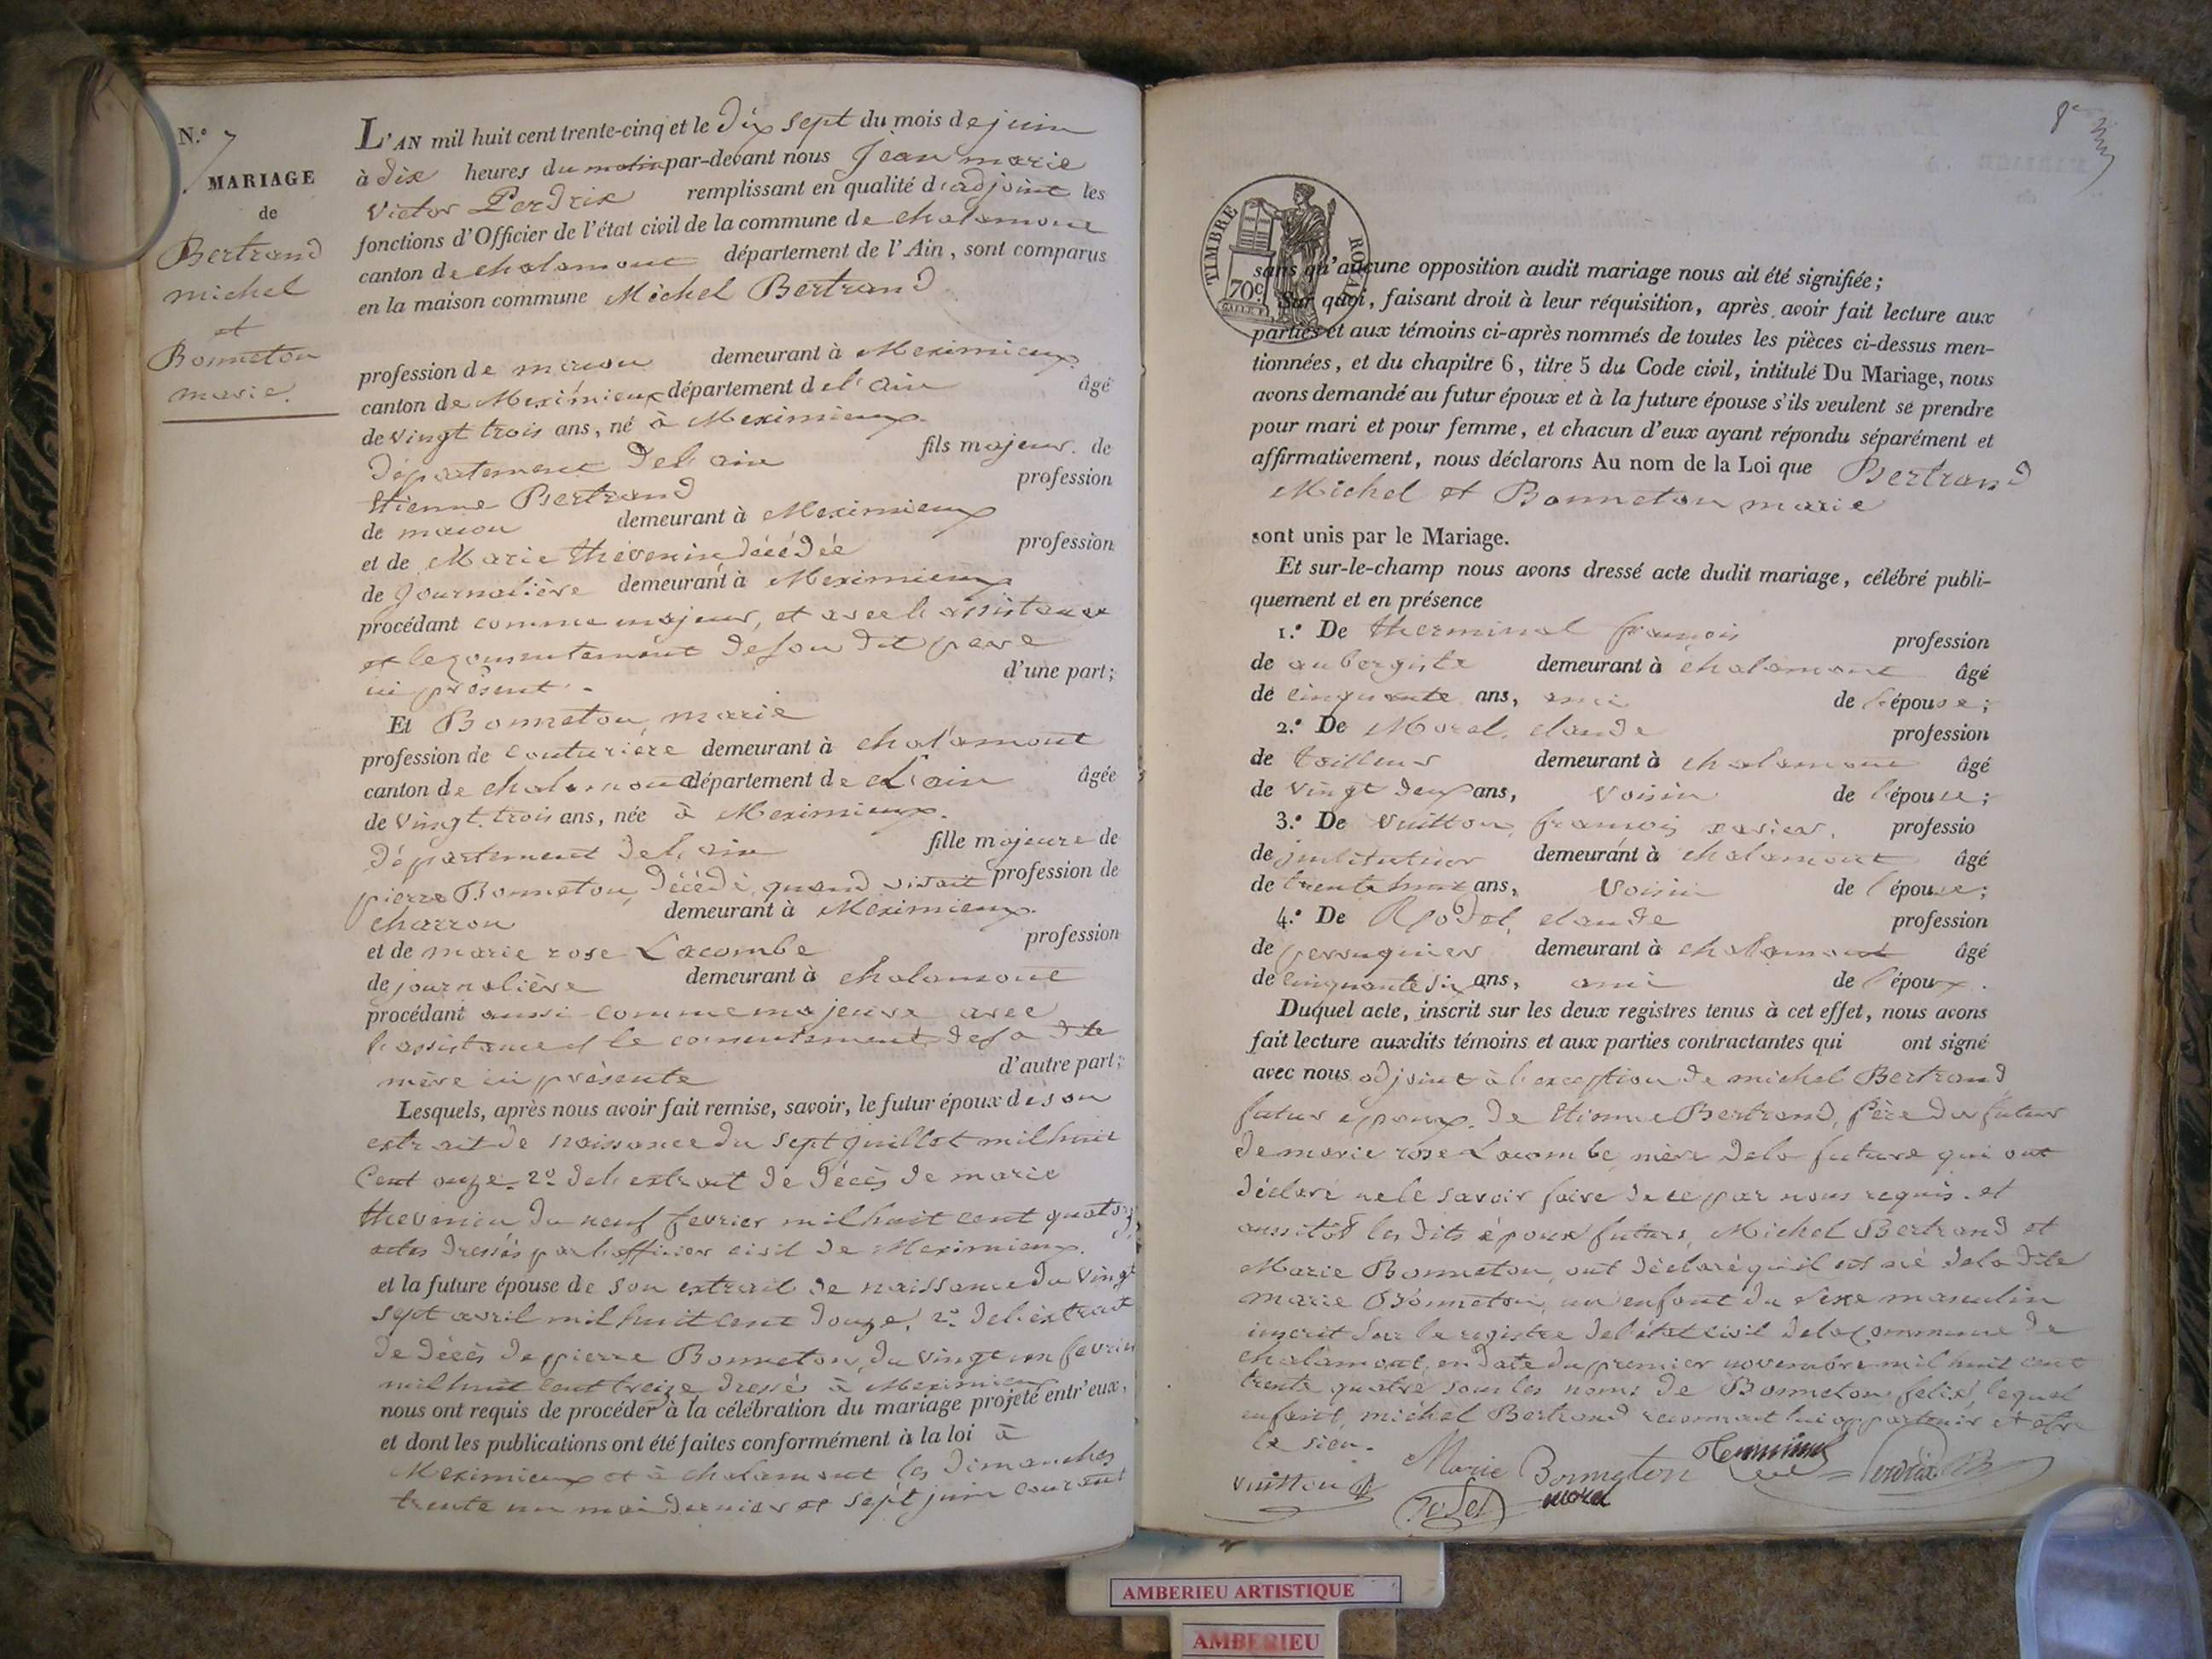 N.° 7
MARIAGE
de
Bertrand
michel
et
Bonneton
marie.
L'AN mil huit cent trente-cinq et le dix sept du mois de juin
à dix heures du matin par-devant nous Jean marie
Victor Perdrix remplissant en qualité d'adjoint les
fonctions d'Officier de l'état civil de la commune de chalamont
canton de chalamont département de l'Ain, sont comparus
en la maison commune Michel Bertrand
profession de maçon demeurant à Meximieux.
canton de Meximieux département de l'ain âgé
de vingt trois ans, né à Meximieux.
département de l'ain fils majeur. de
Etienne Bertrand profession
de maçon demeurant à Meximieux
et de Marie thévenin décédée profession
de Journalière demeurant à Meximieux
procédant comme majeur, et avec l'assistance
et le consentement de son dit père
ici présent. d'une part;
Et Bonneton, marie
profession de couturière demeurant à chalamont
canton de chalamont département de L'ain âgée
de vingt trois ans, née à Meximieux.
département de l'ain fille majeure de
pierre Bonneton, décédé, quand vivait profession de
charron demeurant à Meximieux.
et de marie rose Lacombe profession
de journalière demeurant à chalamont
procédant aussi comme majeure avec
l'assistance et le consentement de sa dite
mère ici présente d'autre part;
Lesquels, après nous avoir fait remise, savoir, le futur époux de son
extrait de naissance du sept juillet mil huit
Cent onze. 2° de l'extrait de décès de marie
thevenin du neuf fevrier mil huit cent quatorze
actes dressés par l'officier civil de Meximieux.
et la future épouse de son extrait de naissance du vingt
sept avril mil huit cent douze, 2° de l'extrait
de décès de pierre Bonneton, du vingt un fevrier
mil huit cent treize dressés à Meximieux
nous ont requis de procéder à la célébration du mariage projeté entr'eux,
et dont les publications ont été faites conformément à la loi à
Meximieux et à chalamont les dimanches
trente un mai dernier et sept juin courant
8e
TIMBRE ROYAL
70c
sans qu'aucune opposition audit mariage nous ait été signifiée;
Sur quoi, faisant droit à leur réquisition, après avoir fait lecture aux
parties et aux témoins ci-après nommés de toutes les pièces ci-dessus men-
tionnées, et du chapitre 6, titre 5 du Code civil, intitulé Du Mariage, nous
avons demandé au futur époux et à la future épouse s'ils veulent se prendre
pour mari et pour femme, et chacun d'eux ayant répondu séparément et
affirmativement, nous déclarons Au nom de la Loi que Bertrand
Michel et Bonneton marie
sont unis par le Mariage.
Et sur-le-champ nous avons dressé acte dudit mariage, célébré publi-
quement et en présence
1.° De therminal françois profession
de aubergiste demeurant à chalamont âgé
de cinquante ans, ami de l'épouse;
2.° De Morel, claude profession
de tailleur demeurant à chalamont âgé
de vingt deux ans, voisin de l'épouse;
3.° De Vuitton, françois xavier, professio
de jnstituteur demeurant à chalamont âgé
de trente huit ans, voisin de l'épouse;
4.° De Rodet, claude profession
de perruquier demeurant à chalamont âgé
de cinquante six ans, ami de l'époux.
Duquel acte, inscrit sur les deux registres tenus à cet effet, nous avons
fait lecture auxdits témoins et aux parties contractantes qui ont signé
avec nous adjoint à l'exception de michel Bertrand
futur époux. de Etienne Bertrand, père du futur
de marie rose Lacombe mère de la future qui ont
déclaré ne le savoir faire de ce par nous requis. et
aussitôt les dits époux futurs, Michel Bertrand et
Marie Bonneton, ont déclaré qu'il est né de la dite
marie Bonneton, un enfant du sexe masculin
inscrit sur le registre de l'état civil de la Commune de
chalamont, en date du premier novembre mil huit cent
trente quatre sous les noms de Bonneton felix, lequel
enfant, michel Bertrand reconnait lui appartenir et etre
le sien.
Marie Bonneton Therminal Perdrix
Vuitton Rodet morel
AMBERIEU ARTISTIQUE
AMBERIEU